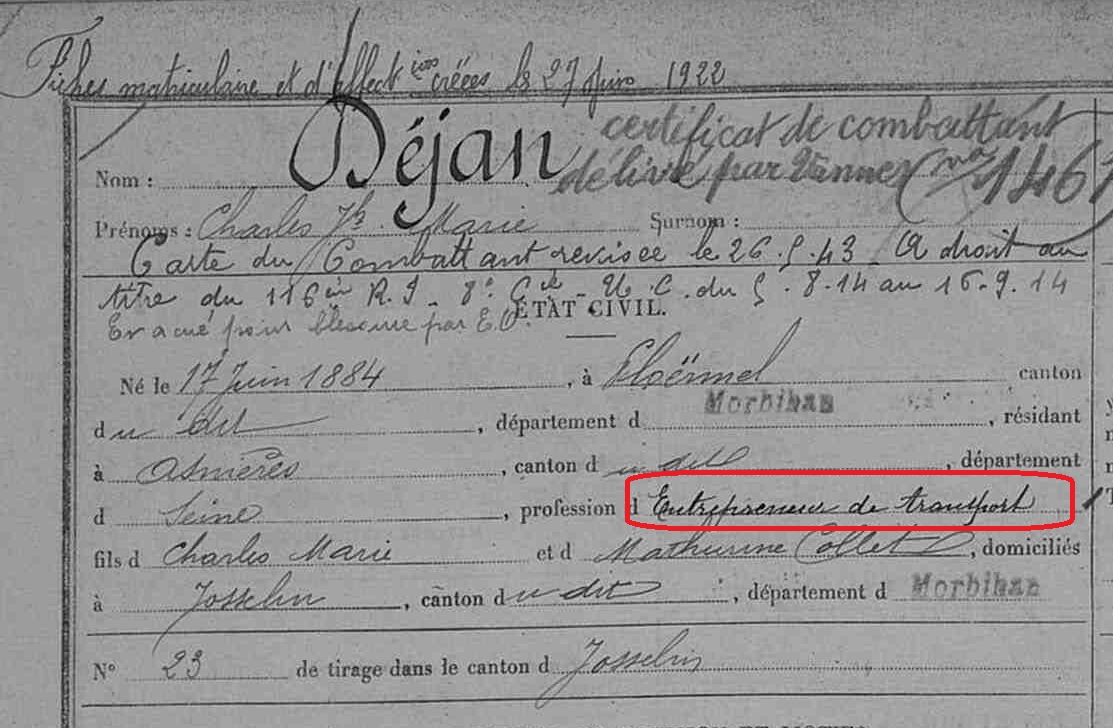 Fiches matriculaire et d'effections créées le 27 Juin 1922
certificat de combattant
Déjan
délivré par Vannes (no 1467
Nom :
Prénoms : Charles Jh. Marie Surnom :
Carte du Combattant revisée le 26.5.43 A droit au
titre du 116ème R.I - 8e Cie - U.C. du 5.8.14 au 16.9.14
ÉTAT CIVIL.
Evacué pour blessure par E.O.
Né le 17 Juin 1884, à Ploërmel canton
du dit, département d Morbihan, résidant
à Asnières, canton du dit, département
d Seine, profession d Entrepreneur de transport
fils d Charles Marie et d Mathurine Collet, domiciliés
à Josselin, canton du dit, département d Morbihan
N° 23 de tirage dans le canton d Josselin